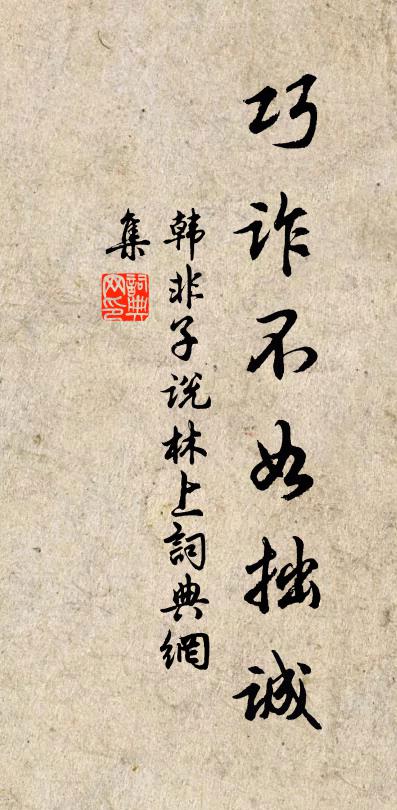 巧诈不如拙诚
韩非子说林上詞典網
集
詞典
网印